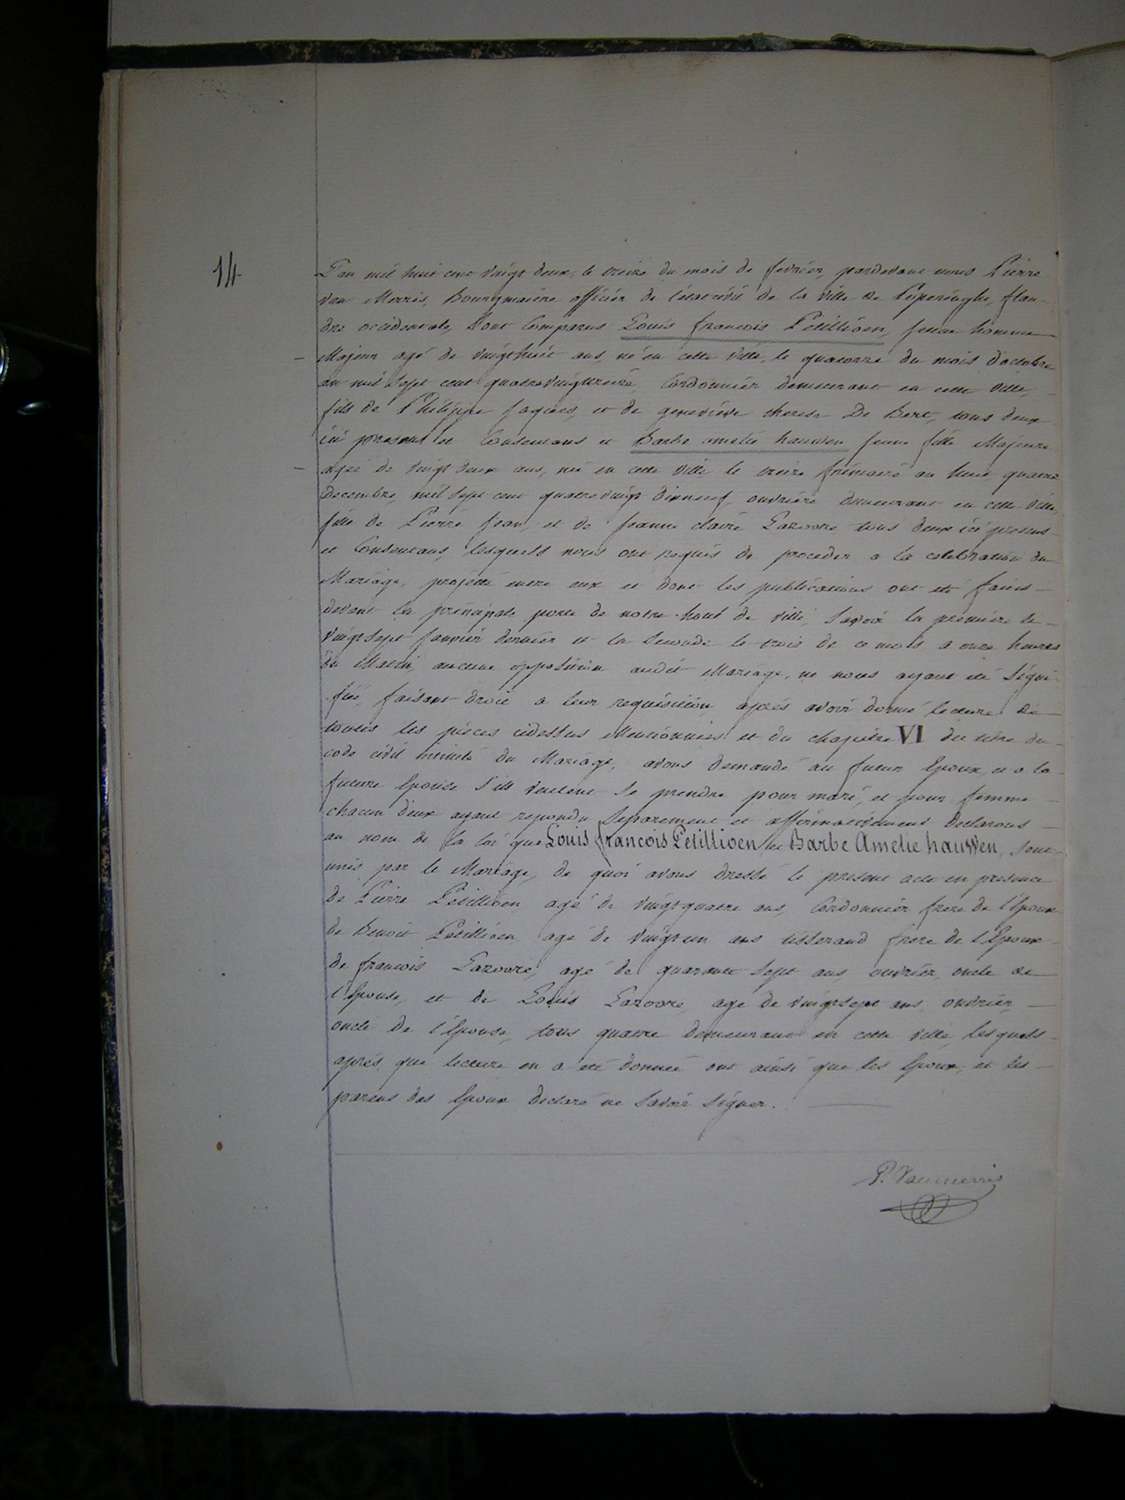 14
L'an mil huit cent vingt deux, le treize du mois de fevrier, pardevant nous Pierre
Van Merris, Bourgmaitre officier de l'etatcivil de la ville de Poperinghe, flan-
dre occidentale, sont comparus Louis francois Petillioen, jeune homme
Majeur agé de vingthuit ans, né en cette ville, le quatorze du mois d'octobre
an mil sept cent quatrevingttreize, Cordonnier demeurant en cette ville,
fils de Philippe Jacques, et de geneviève therese De Bert, tous deux
ici present et Consentans et Barbe amelie hauwen jeune fille Majeure
agée de vingt deux ans, née en cette ville le treize frimaire an huit, quatre
decembre, mil sept cent quatrevingt dixneuf, ouvrière demeurant en cette ville,
fille de Pierre jean, et de jeanne claire Lazoore tous deux ici presens
et Consentans, lesquels nous ont requis de proceder a la celebration du
Mariage, projetté entre eux et dont les publications ont eté faites
devant la principale porte de notre hotel de ville, savoir la première le
vingtsept janvier dernier et la seconde le trois de ce mois a onze heures
du Matin, aucune opposition audit Mariage, ne nous ayant été signi-
fiée, faisant droit a leur requisition après avoir donné lecture de
toutes les pièces cidessus Mentionnées et du chapitre VI du titre du
code civil intitulé du Mariage, avons demandé au futur Epoux, et a la
future Epouse s'ils veulent se prendre pour mari, et pour femme
chacun d'eux ayant repondu separement et affirmativement declarons
au nom de la loi que Louis francois Petillioen, et Barbe Amelie hauwen, sont
unis par le Mariage, de quoi avons dressé le present acte en presence
de Pierre Petillioen agé de vingtquatre ans, Cordonnier frere de l'Epoux
de Benoit Petillioen agé de vingtun ans tisserand frere de l'Epoux
de francois Lazoore, agé de quarante sept ans ouvrier, oncle de
l'Epouse, et de Louis Lazoore, agé de vingtsept ans, ouvrier,
oncle de l'Epouse, tous quatre demeurant en cette ville, lesquels
après que lecture en a été donnée ont ainsi que les Epoux, et les
parens des Epoux declaré ne savoir signer.
P. Vanmerris